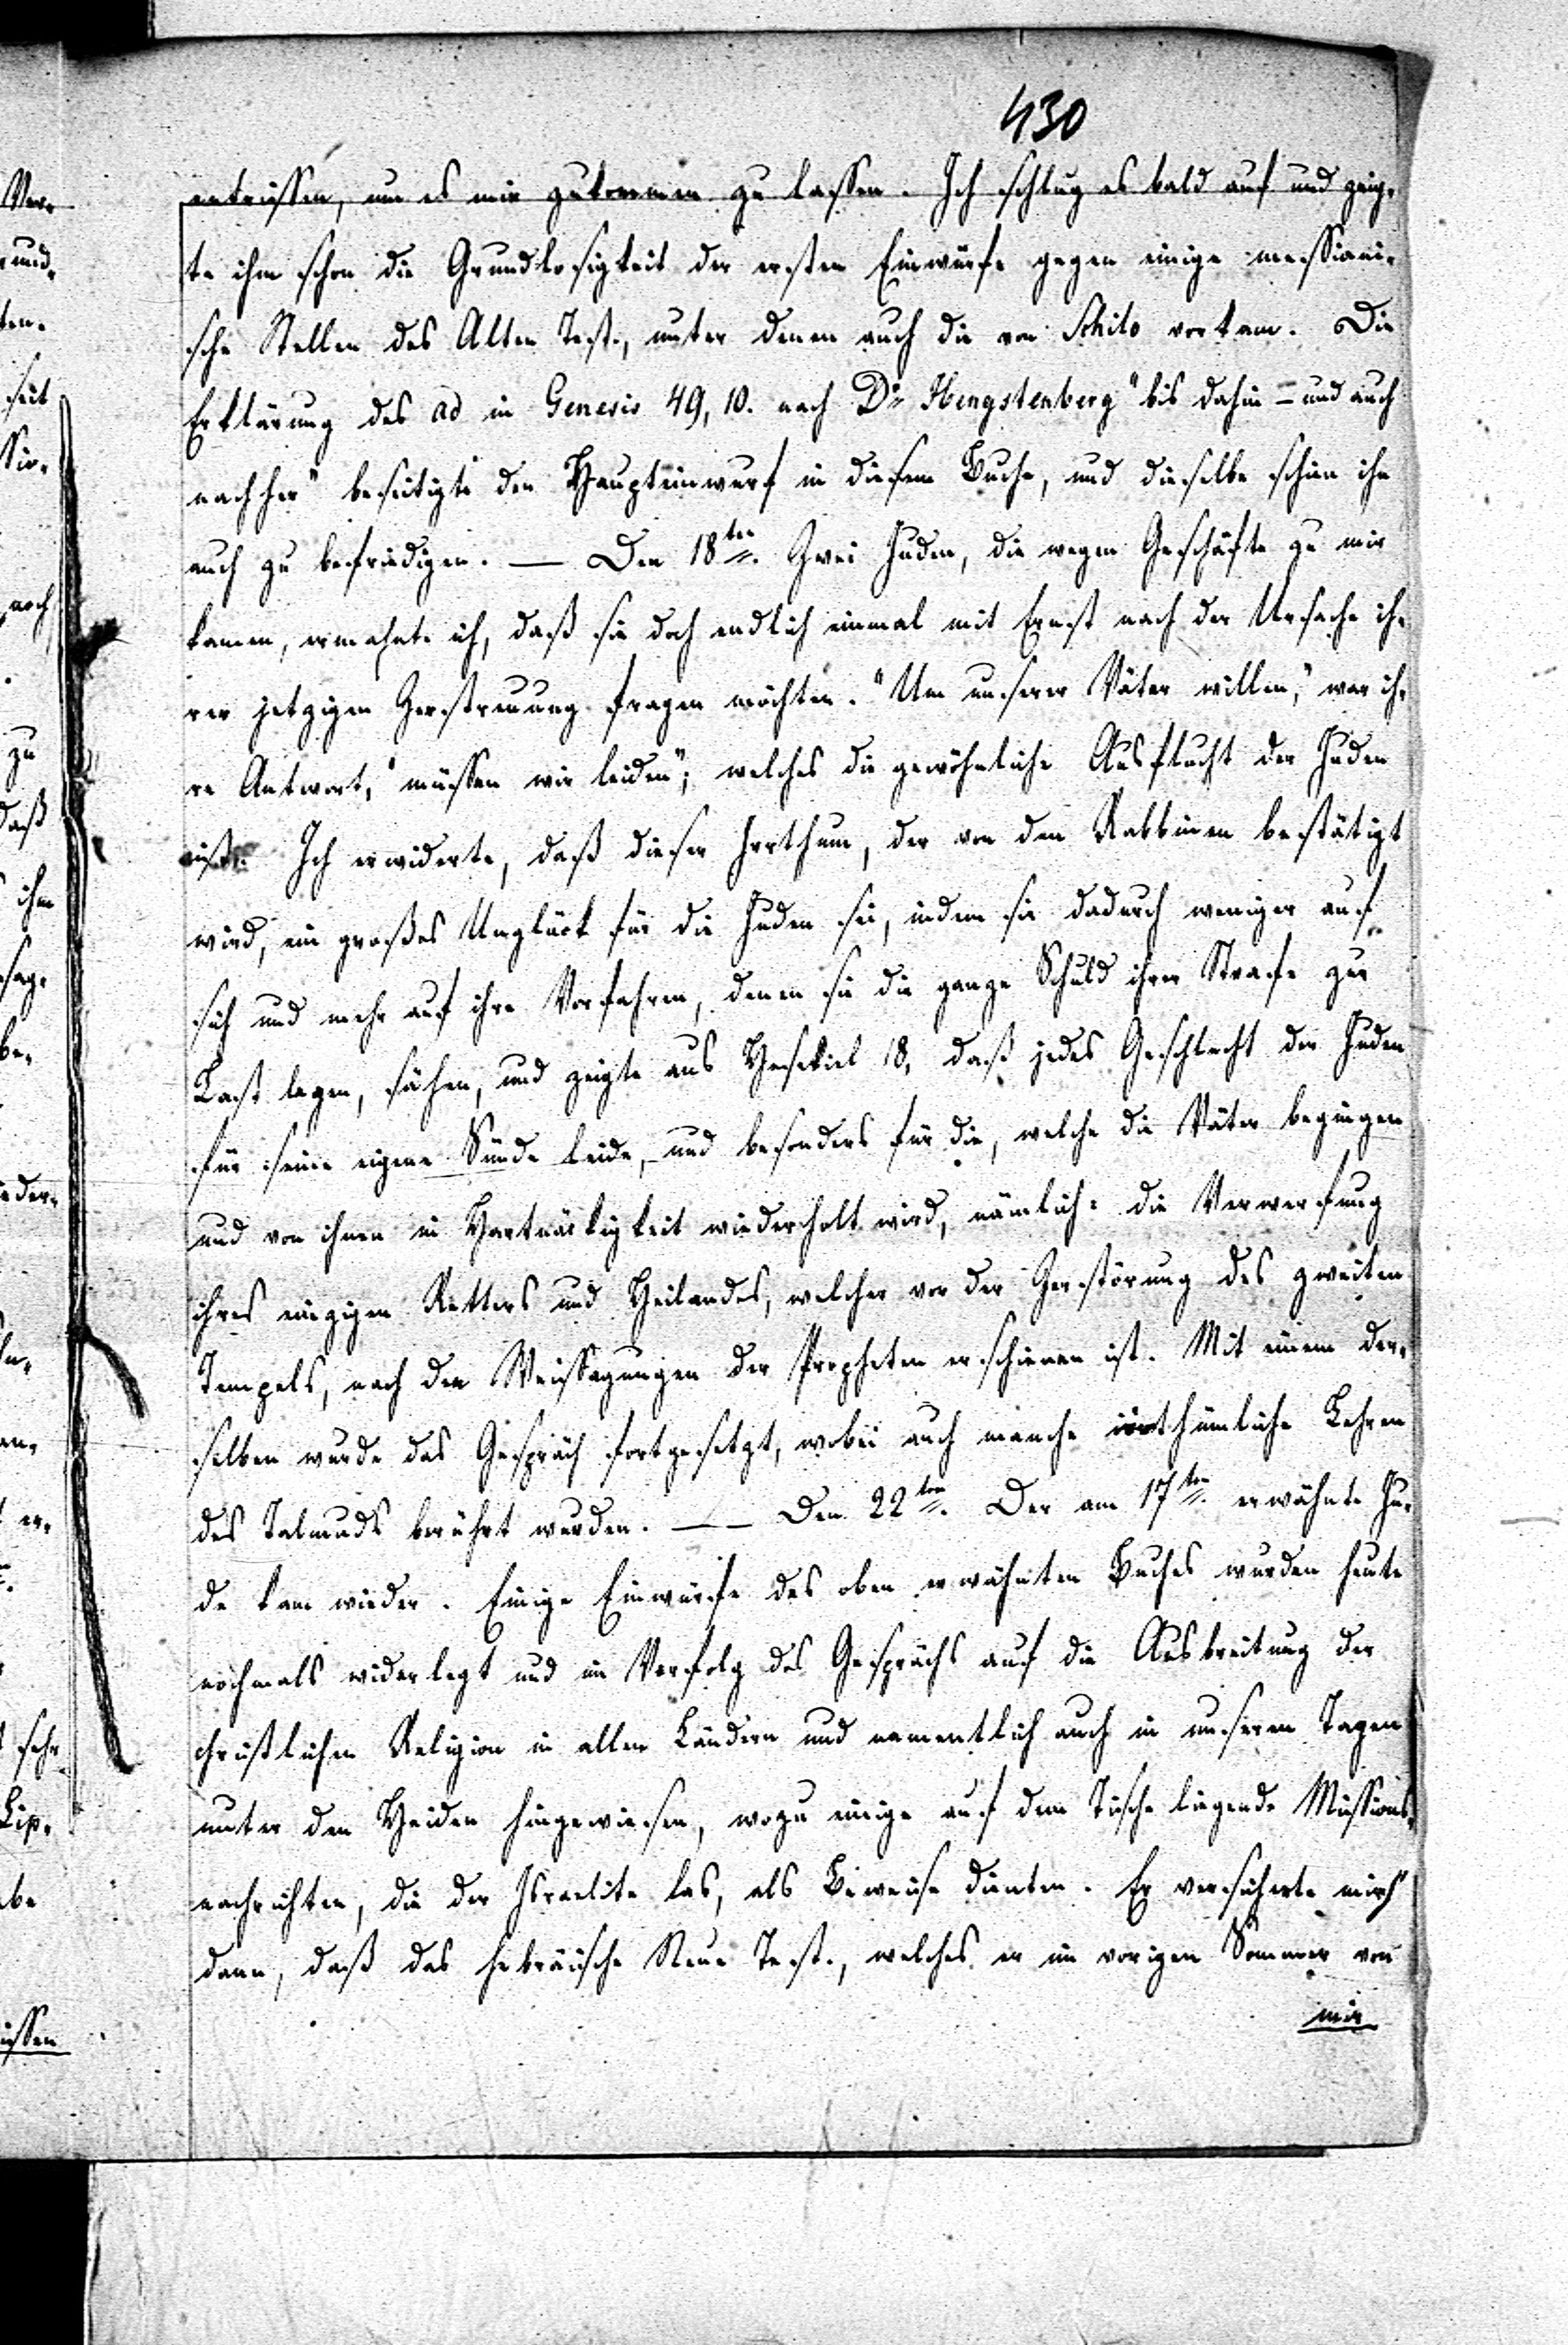 430
entrissen, um es mir zukommen zu lassen. Ich schlug es bald auf und zeig-
te ihm schon die Grundlosigkeit der ersten Einwürfe gegen einige messiani-
sche Stellen des Alten Test., unter denen auch die von Schilo vorkam. Die
Erklärung des ad in Genesis 49, 10. nach Dr Hengstenberg "bis dahin – und auch
nachher" beseitigte den Haupteinwurf in diesem Buche, und dieselbe schien ihn
auch zu befriedigen. — Den 18ten. Zwei Juden, die wegen Geschäfte zu mir
kamen, ermahnte ich, daß sie doch endlich einmal mit Ernst nach der Ursache ih-
rer jetzigen Zerstreuung fragen möchten. "Um unserer Väter willen," war ih-
re Antwort, "müssen wir leiden"; welches die gewöhnliche Ausflucht der Juden
ist. Ich erwiderte, daß dieser Irrthum, der von den Rabbinen bestätigt
wird, ein großes Unglück für die Juden sei, indem sie dadurch weniger auf
sich und mehr auf ihre Vorfahren, denen sie die ganze Schuld ihrer Strafe zur
Last legen, sähen, und zeigte aus Hesekiel 18, daß jedes Geschlecht der Juden
für seine eigene Sünde leide, und besonders für die, welche die Väter begingen
und von ihnen in Hartnäckigkeit wiederholt wird, nämlich: die Verwerfung
ihres einzigen Retters und Heilandes, welcher vor der Zerstörung des zweiten
Tempels, nach den Weissagungen der Propheten erschienen ist. Mit einem der-
selben wurde das Gespräch fortgesetzt, wobei auch manche irrthümliche Lehren
des Talmuds berührt wurden. — Den 22ten. Der am 17ten erwähnte Ju-
de kam wieder. Einige Einwürfe des oben erwähnten Buches wurden heute
nochmals widerlegt und im Verfolg des Gesprächs auf die Ausbreitung der
christlichen Religion in allen Ländern und namentlich auch in unseren Tagen
unter den Heiden hingewiesen, wozu einige auf dem Tische liegende Missions-
nachrichten, die der Israelite las, als Beweise dienten. Er versicherte mich
dann, daß das hebräische Neue Test., welches er im vorigen Sommer von
mir